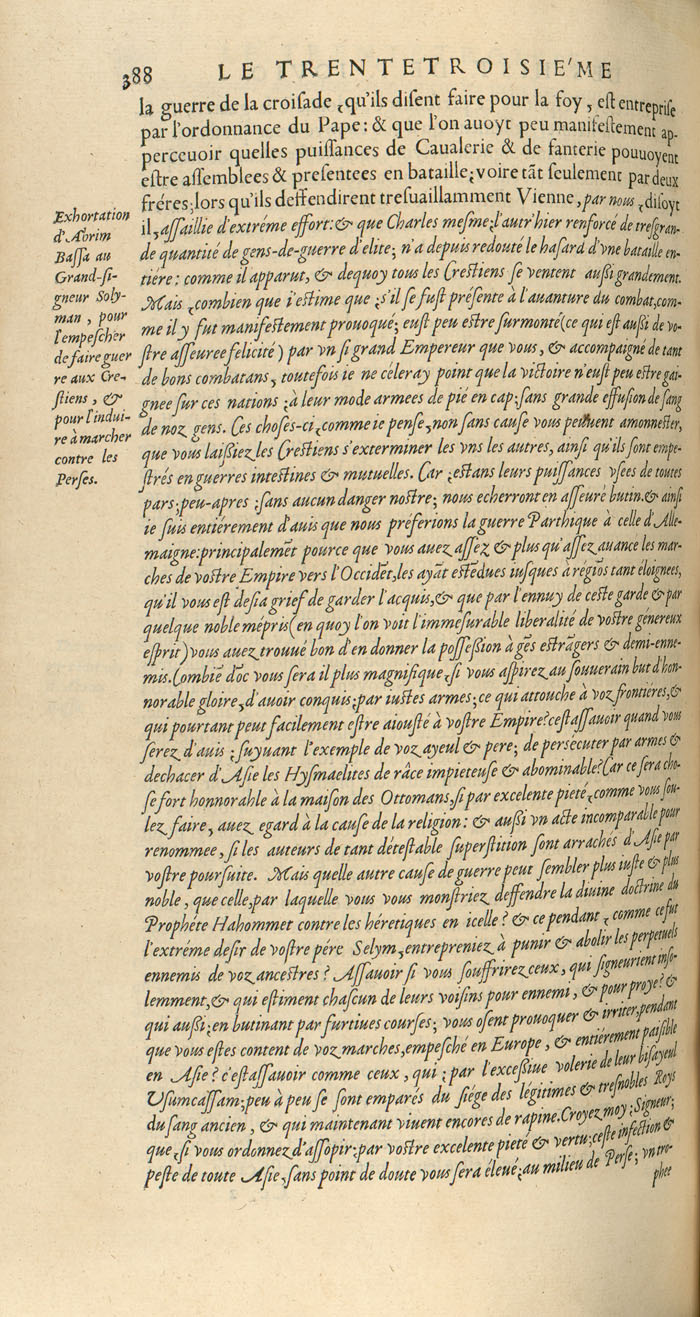 388 LE TRENTETROISIE'ME
la guerre de la croisade, qu'ils disent faire pour la foy, est entreprise
par l'ordonnance du Pape: & que l'on auoyt peu manifestement ap-
perceuoir quelles puissances de Caualerie & de fanterie pouuoyent
estre assemblees & presentees en bataille; voire tãt seulement par deux
fréres; lors qu'ils deffendirent tresuaillamment Vienne, par nous, disoyt
il, assaillie d'extréme effort: & que Charles mesme; l'autr'hier renforcé de tresgran-
de quantité de gens-de-guerre d'elite; n'a depuis redouté le hasard d'vne bataille en-
tiére: comme il apparut, & dequoy tous les Crestiens se ventent außi grandement.
Mais, combien que i'estime que; s'il se fust présenté à l'auanture du combat, com-
me il y fut manifestement prouoqué; eust peu estre surmonté (ce qui est außi de vo-
stre asseuree felicité) par vn si grand Empereur que vous, & accompaigné de tant
de bons combatans, toutefois ie ne céleray point que la victoire n'eust peu estre gai-
gnee sur ces nations; à leur mode armees de pié en cap; sans grande effusion de sang
de noz gens. Ces choses-ci, comme ie pense, non sans cause vous peuuent amonnester,
que vous laißiez les Crestiens s'exterminer les vns les autres, ainsi qu'ils sont empe-
strés en guerres intestines & mutuelles. Car; estans leurs puissances vsees de toutes
pars; peu-apres; sans aucun danger nostre; nous echerront en asseuré butin. & ainsi
ie suis entiérement d'auis que nous préferions la guerre Parthique à celle d'Alle-
maigne: principalemẽt pource que vous auez assez & plus qu'assez auance les mar-
ches de vostre Empire vers l'Occidẽt, les ayãt estẽdues iusques à régiõs tant éloignees,
qu'il vous est desia grief de garder l'acquis, & que par l'ennuy de ceste garde & par
quelque noble mépris (en quoy l'on voit l'immesurable liberalité de vostre génereux
esprit) vous auez trouué bon d'en donner la posseßion à gẽs estrãgers & demi-enne-
mis. Combiẽ dõc vous sera il plus magnifique, si vous aspirez au souuerain but d'hon-
norable gloire, d'auoir conquis; par iustes armes; ce qui attouche à voz frontiéres, &
qui pourtant peut facilement estre aiousté à vostre Empire? cest assauoir quand vous
serez d'auis; suyuant l'exemple de voz ayeul & pere; de persécuter par armes &
dechacer d'Asie les Hysmaelites de râce impieteuse & abominable? Car ce sera cho-
se fort honnorable à la maison des Ottomans, si par excelente pieté, comme vous sou-
lez faire, auez egard à la cause de la religion: & außi vn acte incomparable pour
renommee, si les auteurs de tant détestable superstition sont arrachés d'Asie par
vostre poursuite. Mais quelle autre cause de guerre peut sembler plus iuste & plus
noble, que celle, par laquelle vous vous monstriez deffendre la diuine doctrine du
Prophéte Hahommet contre les héretiques en icelle? & ce pendant, comme ce fut
l'extréme desir de vostre pére Selym, entrepreniez à punir & abolir les perpetuels
ennemis de voz ancestres? Assauoir si vous souffrirez ceux, qui signeurient inso-
lemment, & qui estiment chascun de leurs voisins pour ennemi, & pour proye? &
qui aussi; en butinant par furtiues courses; vous osent prouoquer & irriter, pendant
que vous estes content de voz marches, empesché en Europe, & entiérement paisible
en Asie? c'est assauoir comme ceux, qui; par l'exceßiue volerie de leur bisayeul
Vsumcassam; peu à peu se sont emparés du siége des légitimes & tresnobles Roys
du sang ancien, & qui maintenant viuent encores de rapine. Croyez moy; Signeur;
que, si vous ordonnez d'assopir; par vostre excelente pieté & vertu; ceste infection &
peste de toute Asie, sans point de doute vous sera éleué; au milieu de Perse; vn tro-
phee
Exhortation
d'Abrim
Bassa au
Grand-si-
gneur Soly-
man, pour
l'empescher
de faire guer
re aux Cre-
stiens, &
pour l'indui-
re à marcher
contre les
Perses.